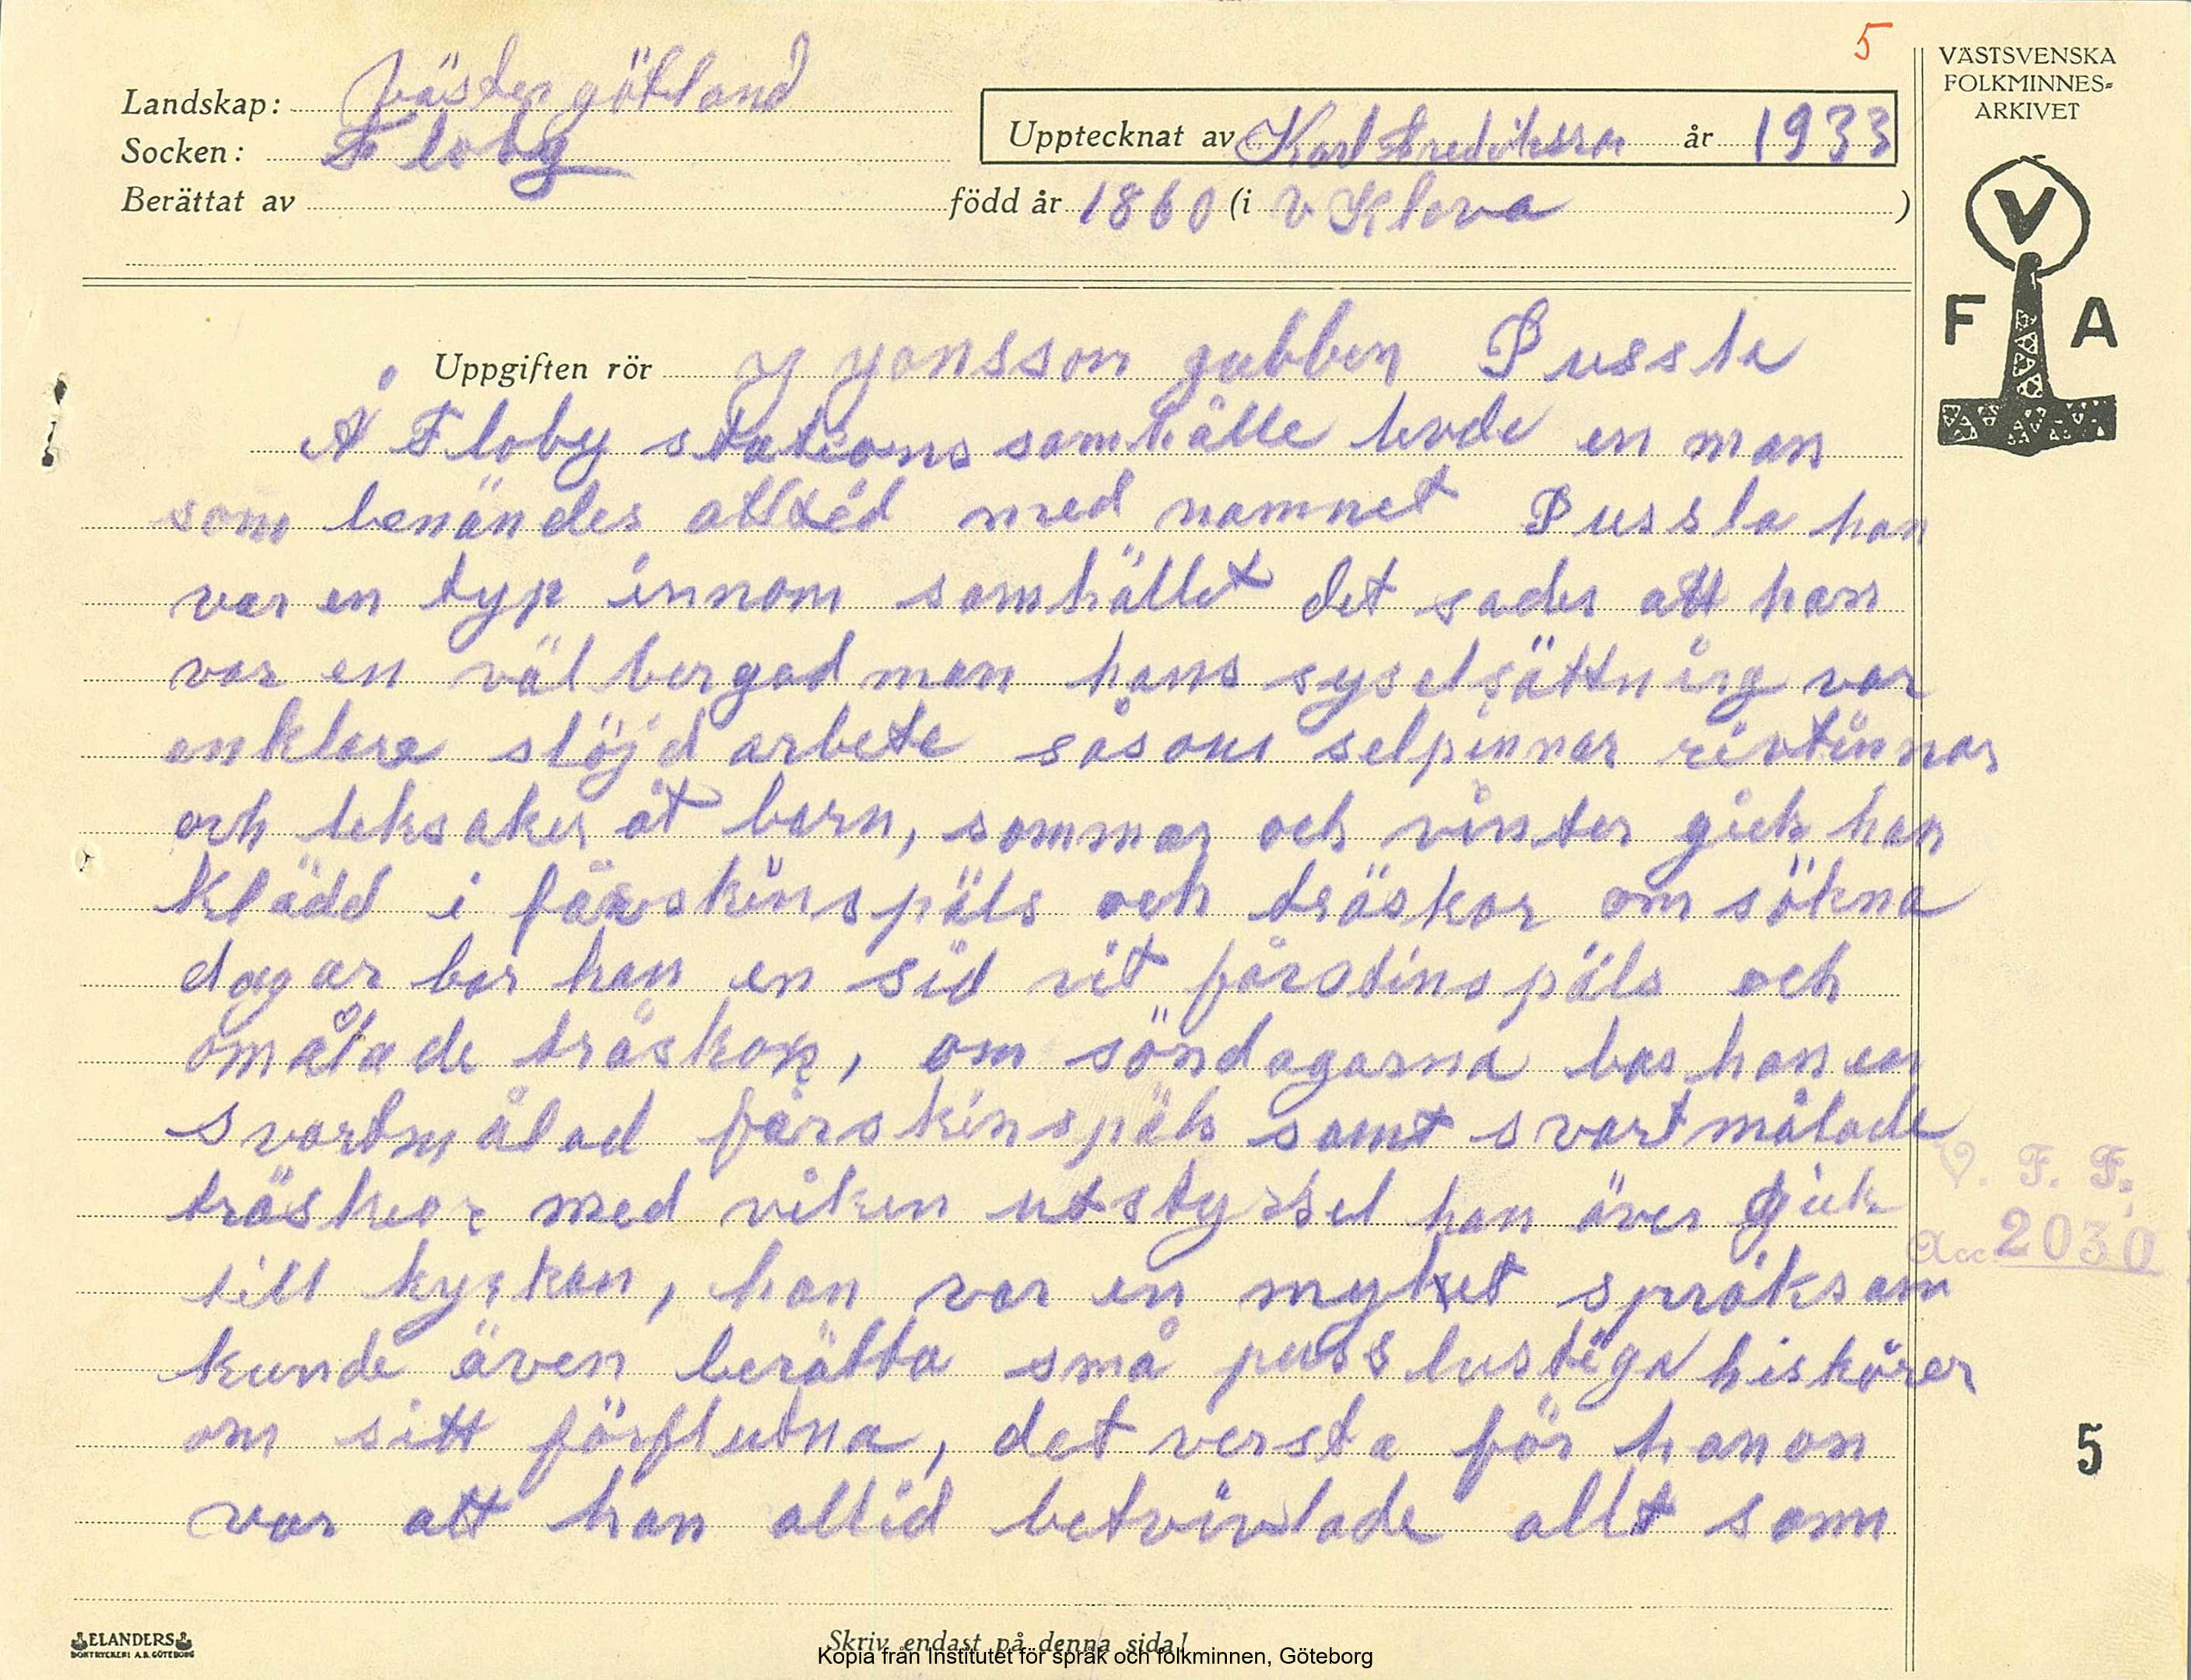 5
VÄSTSVENSKA
FOLKMINNES-
ARKIVET
Landskap: Västergötland
Socken: Floby
Upptecknat av Karl Fredriksson år 1933
Berättat av född år 1860 (i V Kleva )
V
F A
Uppgiften rör J Jonsson gubben Pussla
Å Floby stationssamhälle levde en man
som benändes alltid med namnet Pussla han
var en typ innom samhället det sades att han
var en väl bergad man hans syselsättning var
enklare slöjd arbete såsom selpinnar rivtinnar
och leksaker åt barn, sommar och vinter gick han
klädd i fårskinspäls och träskor om sökna
dagar bar han en sid vit fårstinspäls och
omålade träskor, om söndagarna bar han en
svartmålad fårskinspäls samt svartmålade
träskor med viken utstyrsel han över gick
till kyrkan, han var en myket språksam
kunde även berätta små puss lustiga histörer
om sitt förflutna, det versta för honon
var att han altid betvivlade allt som
V. F. F.
Acc. 2030
5
ELANDERS
BOKTRYCKERI A.B. GÖTEBORG
Skriv endast på denna sida!
Kopia från Institutet för språk och folkminnen, Göteborg